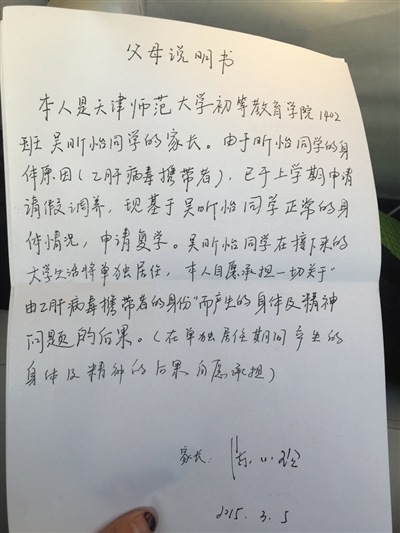 父母说明书
本人是天津师范大学初等教育学院1402
班吴昕怡同学的家长。由于昕怡同学的身
体原因(乙肝病毒携带者),已于上学期申请
请假调养,现基于吴昕怡同学正常的身
体情况,申请复学。吴昕怡同学在接下来的
大学生活将单独居住,本人自愿承担一切关于“
由乙肝病毒携带者的身份”而产生的身体及精神
问题的后果。(在单独居住期间产生的
身体及精神的后果自愿承担)
家长:
2015.3.5